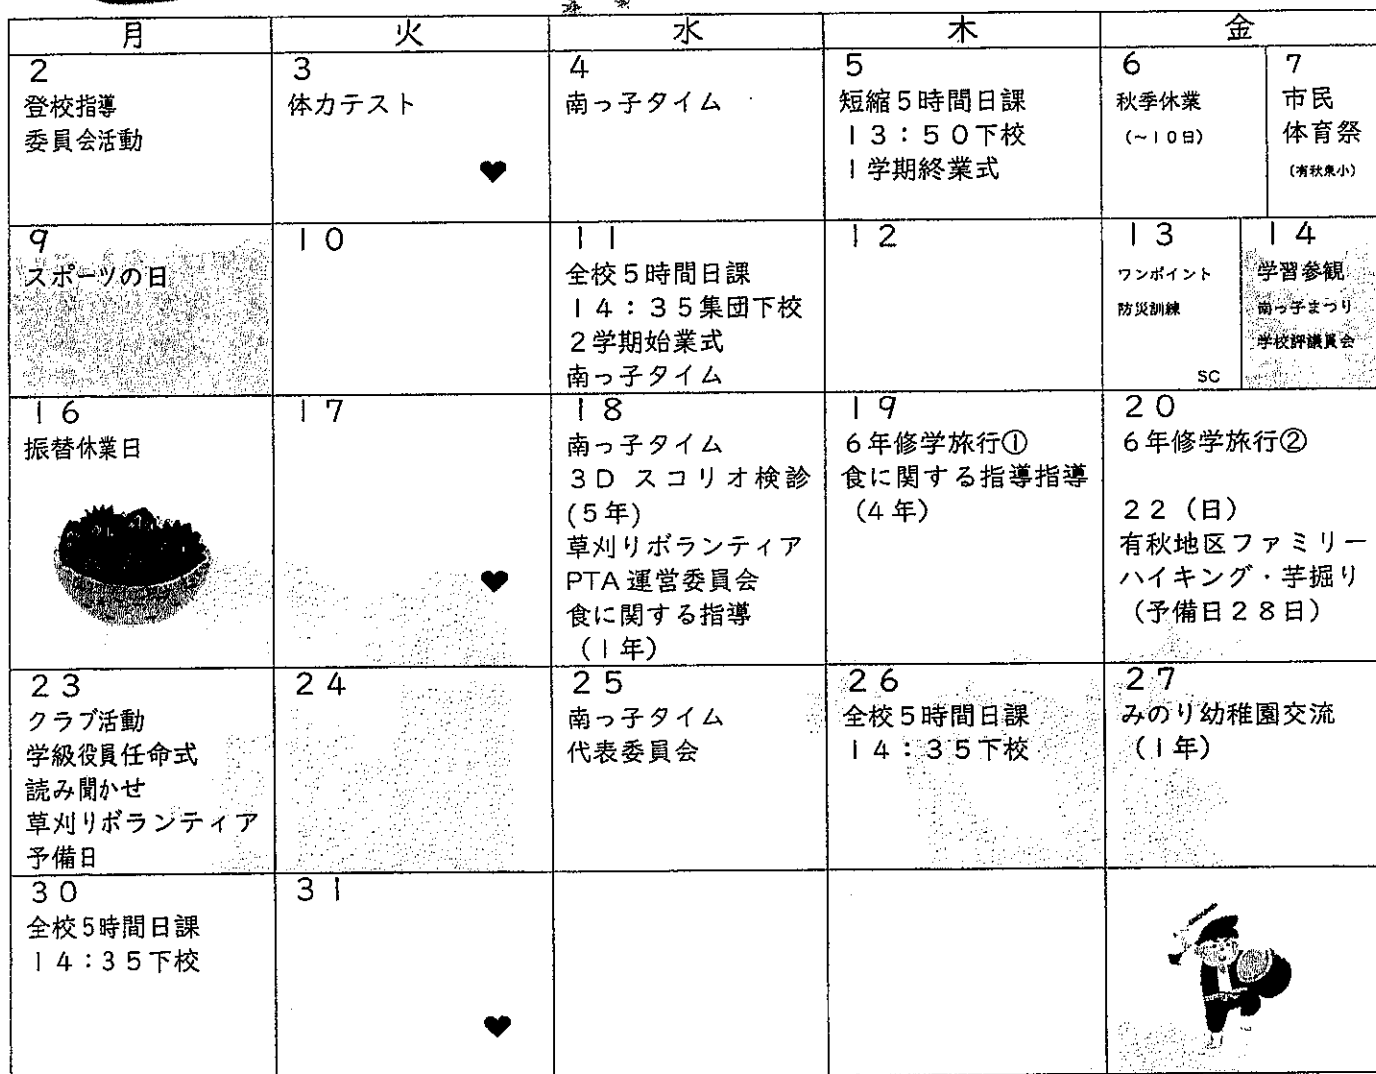 月 火 水 木 金
2
登校指導
委員会活動
3
体力テスト
♥
4
南っ子タイム
5
短縮5時間日課
13:50下校
1学期終業式
6
秋季休業
(~10日)
7
市民
体育祭
(有秋東小)
9
スポーツの日
10
11
全校5時間日課
14:35集団下校
2学期始業式
南っ子タイム
12
13
ワンポイント
防災訓練
SC
14
学習参観
南っ子まつり
学校評議員会
16
振替休業日
17
♥
18
南っ子タイム
3D スコリオ検診
(5年)
草刈りボランティア
PTA運営委員会
食に関する指導
(1年)
19
6年修学旅行①
食に関する指導指導
(4年)
20
6年修学旅行②
22(日)
有秋地区ファミリー
ハイキング・芋掘り
(予備日28日)
23
クラブ活動
学級役員任命式
読み聞かせ
草刈りボランティア
予備日
24
25
南っ子タイム
代表委員会
26
全校5時間日課
14:35下校
27
みのり幼稚園交流
(1年)
30
全校5時間日課
14:35下校
31
♥